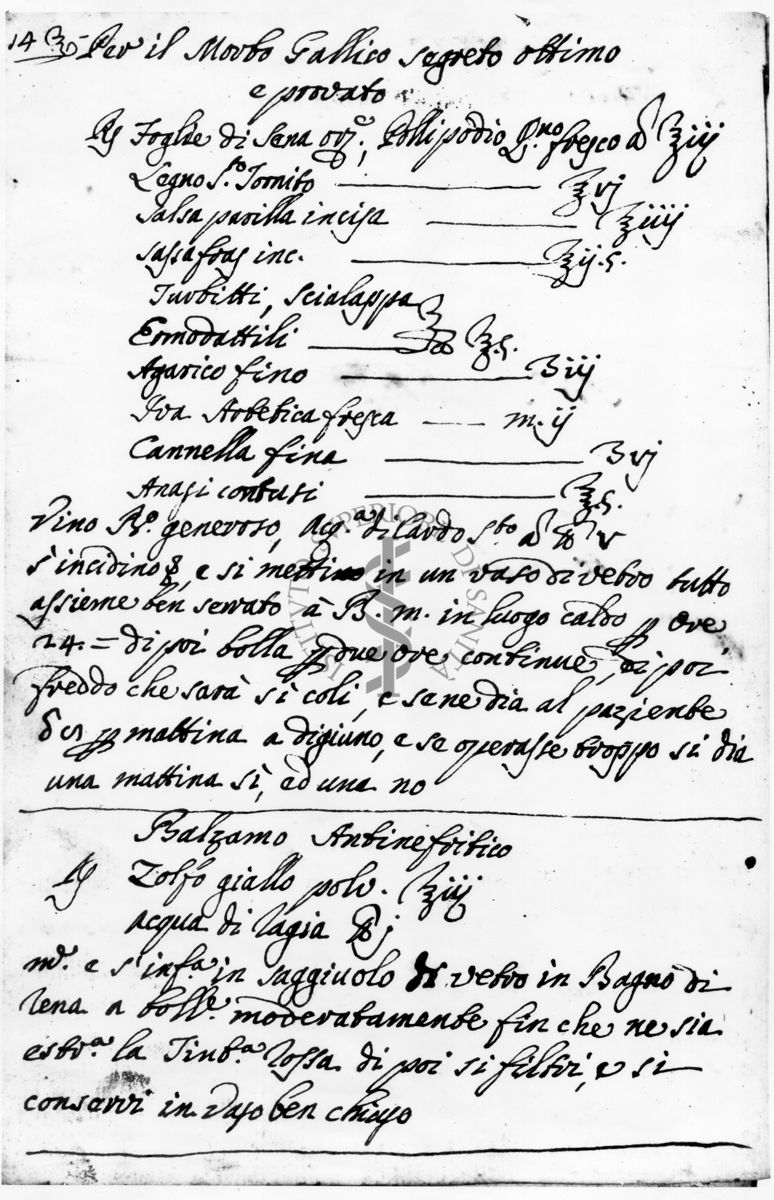 14 ℥
Per il Morbo Gallico segreto ottimo
e provato
℞ Foglie di sena or.e, Pollipodio Q.no fresco aᷓ ℥iij
Legno S.to Tornito ℥vj
Salsa parilla incisa ℥iiij
sassafras inc. ℥ij.s.
Turbitti, scialappa
Ermodattili ℥.s.
Agarico fino Ʒiij
Iva Artetica fresca m.ij
Cannella fina Ʒvj
Anasi contusi ℥.s.
Vino B.o generoso, Acq.a di Cardo S.to aᷓ ℔ v
s'incidino, e si mettino in un vaso di vetro tutto
assieme ben serrato à B.m. in luogo caldo p ore
24. = di poi bolla p due ore continue, e di poi
freddo che sarà si coli, e se ne dia al paziente
p mattina a digiuno, e se operasse troppo si dia
una mattina sì, ed una no
Balzamo Antinefritico
℞ Zolfo giallo polv. ℥iij
Acqua di ragia ℔j
m.e e s'inf.a in saggivolo di vetro in Bagno di
rena a boll.e moderatamente fin che ne sia
estr.a la Tint.a rossa di poi si filtri, e si
conservi in vaso ben chiuso
ISTITUTO SUPERIORE DI SANITÀ